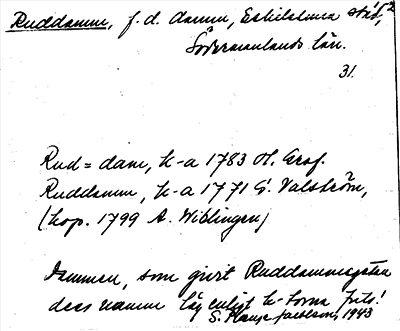 Ruddamm, f. d. damm, Eskilstuna stad,
Södermanlands län.
31.
Rud=dam, k-a 1783 H. Graf.
Ruddamm, k-a 1771 G. Valström,
(kop. 1799 A. Wiblingen)
Dammen, som givit Ruddammsgatan
dess namn låg enligt k-torna
S. 1943